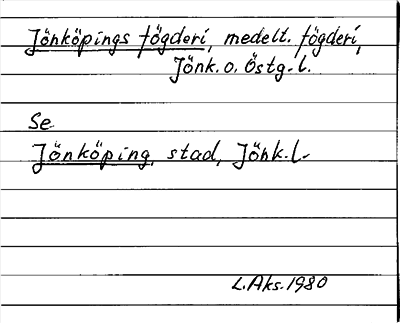 Jönköpings fögderi, medelt. fögderi,
Jönk. o. Östg. l.
Se
Jönköping, stad, Jönk. l.
L. Aks. 1980